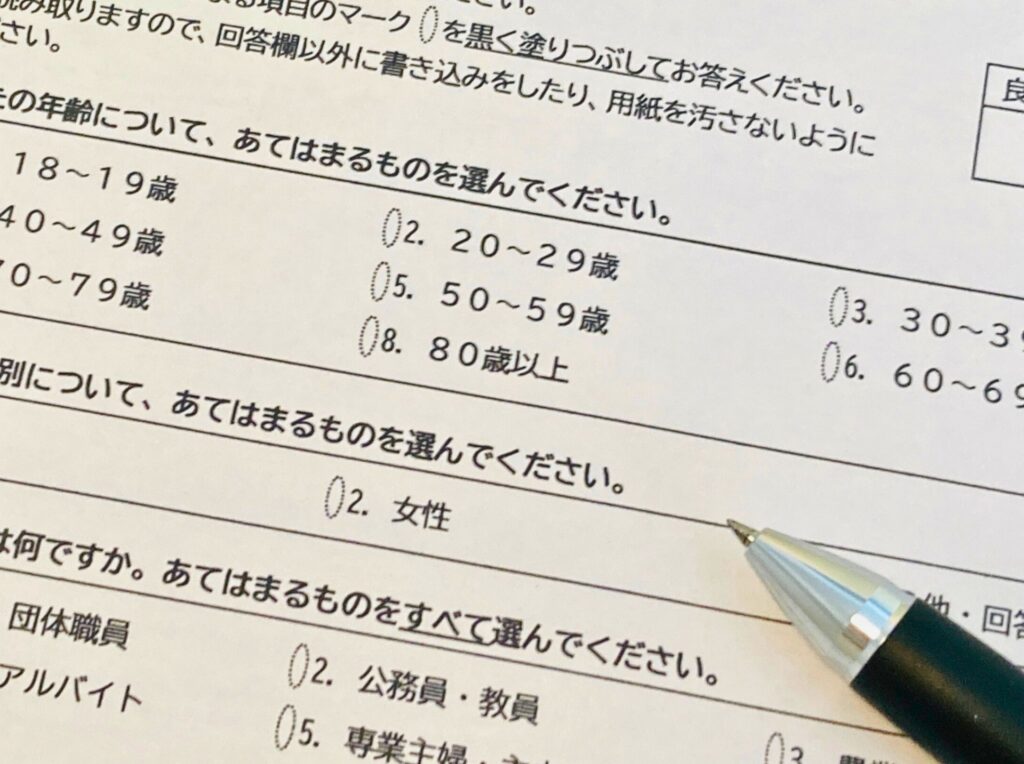 さい。
まる項目のマーク を黒く塗りつぶしてお答えください。
読み取りますので、回答欄以外に書き込みをしたり、用紙を汚さないように
ださい。
良
の年齢について、あてはまるものを選んでください。
18～19歳
2. 20～29歳
3. 30～39
40～49歳
5. 50～59歳
6. 60～69
70～79歳
8. 80歳以上
別について、あてはまるものを選んでください。
2. 女性
他・回答
は何ですか。あてはまるものをすべて選んでください。
団体職員
2. 公務員・教員
3.
アルバイト
5. 専業主婦・主